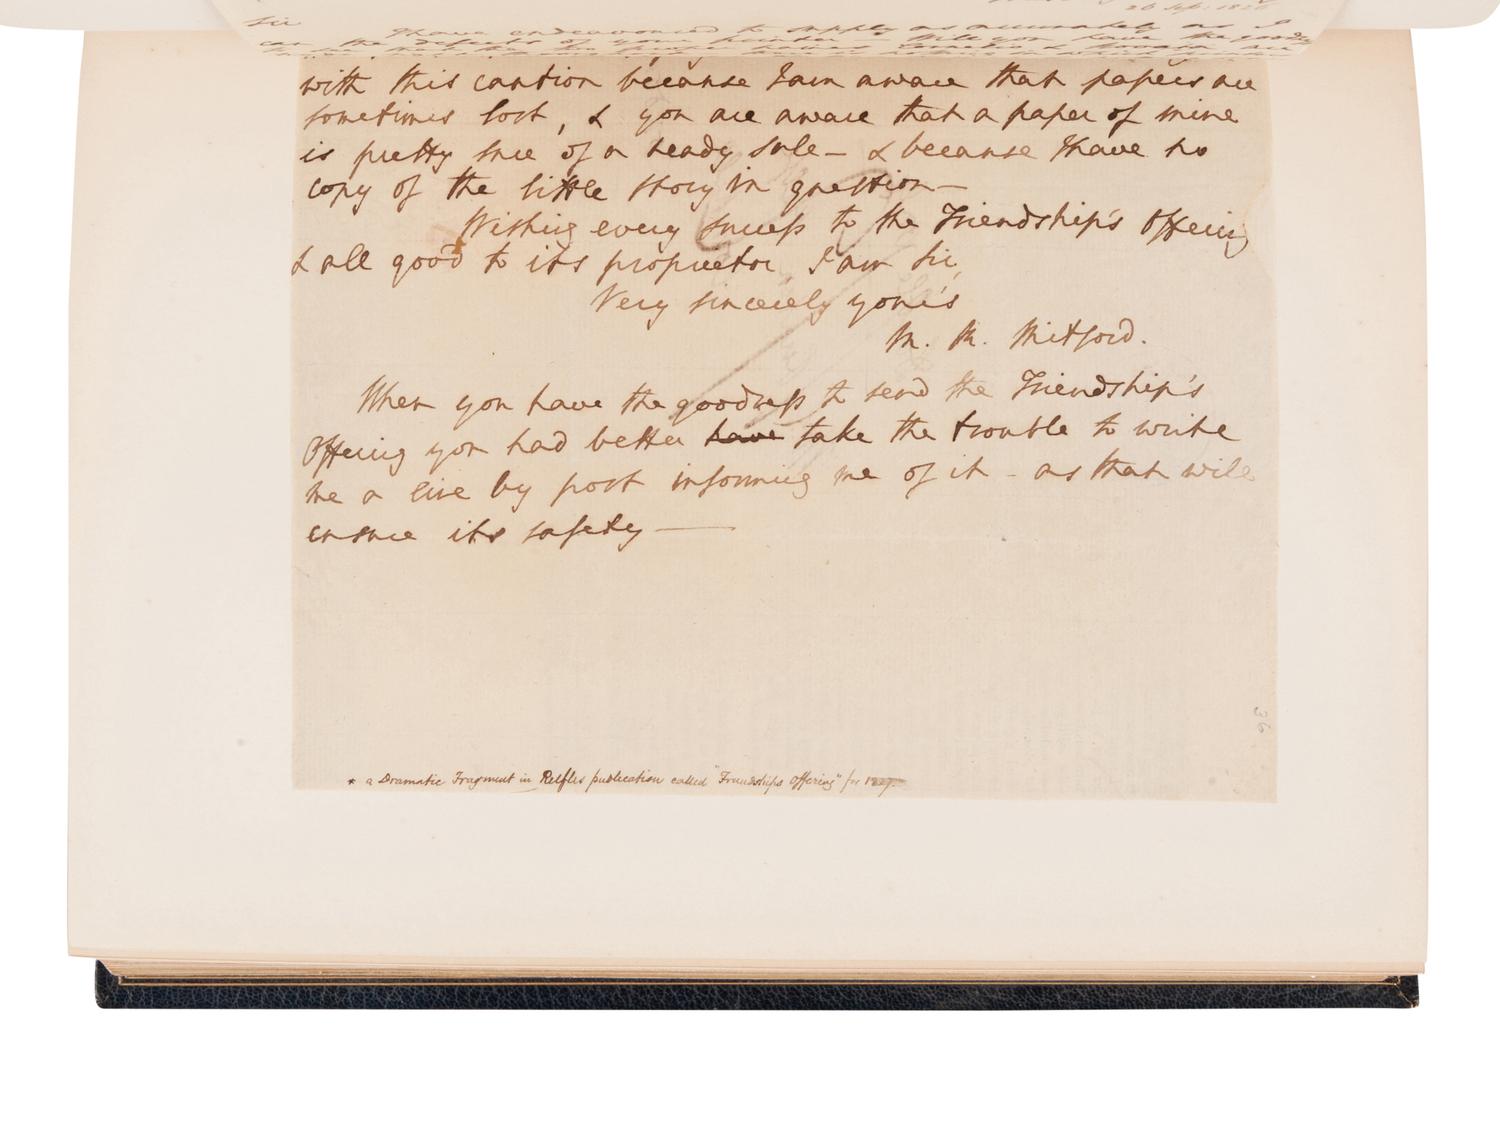 26 Sept. 1826
Sir
I have endeavoured to supply as accurately as I
can the defects of your printer. Will you have the goodness
with this caution because I am aware that papers are
sometimes lost, & you are aware that a paper of mine
is pretty sure of a ready sale — & because I have no
copy of the little story in question —
Wishing every success to the Friendship's Offering
& all good to its proprietor I am Sir,
Very sincerely your's
M. R. Mitford.
When you have the goodness to send the Friendship's
Offering you had better have take the trouble to write
me a line by post informing me of it - as that will
ensure its safety —
* a Dramatic Fragment in Relfes publication called "Friendships Offering" for 1827.
36